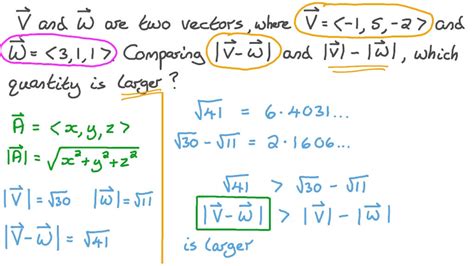 V⃗ and W⃗ are two vectors, where V⃗ = <-1, 5, -2> and
W⃗ = <3, 1, 1>. Comparing |V⃗-W⃗| and |V⃗| - |W⃗|, which
quantity is larger?
A⃗ = <x, y, z>
|A⃗| = √x²+y²+z²
|V⃗| = √30 |W⃗| = √11
|V⃗-W⃗| = √41
√41 = 6.4031...
√30 - √11 = 2.1606...
√41 > √30 - √11
|V⃗-W⃗| > |V⃗| - |W⃗|
is larger